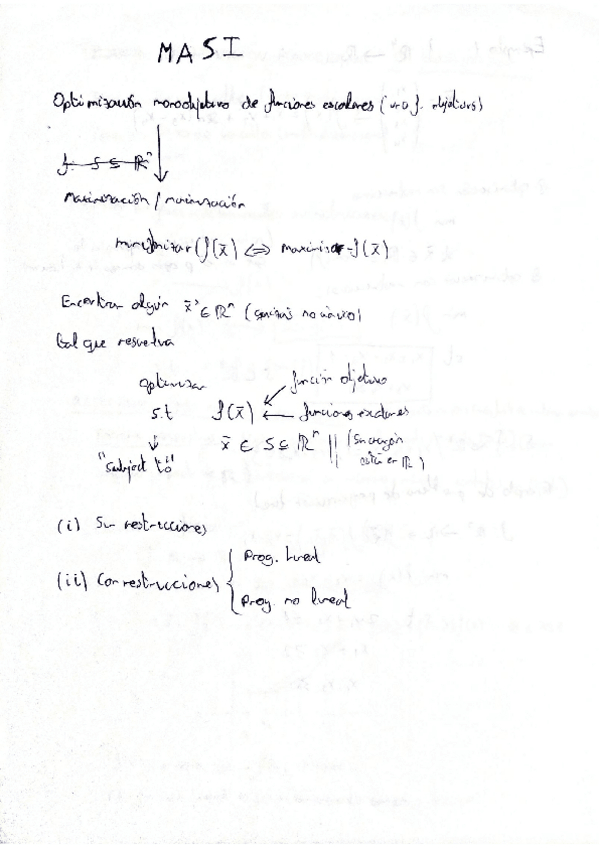 MASI
Optimización monoobjetivo de funciones escalares (una f. objetivos)
f: S ⊆ ℝⁿ
Maximización / minimización
minimizar f(x̄) ⇔ maximizar -f(x̄)
Encontrar algún x̄* ∈ ℝⁿ (quizás no único)
tal que resuelva
optimizar
función objetivo
s.t f(x̄) ← funciones escalares
x̄ ∈ S ⊆ ℝⁿ || (Su imagen
está en ℝ)
"subject to"
(i) Sin restricciones
(ii) Con restricciones
Prog. lineal
Prog. no lineal